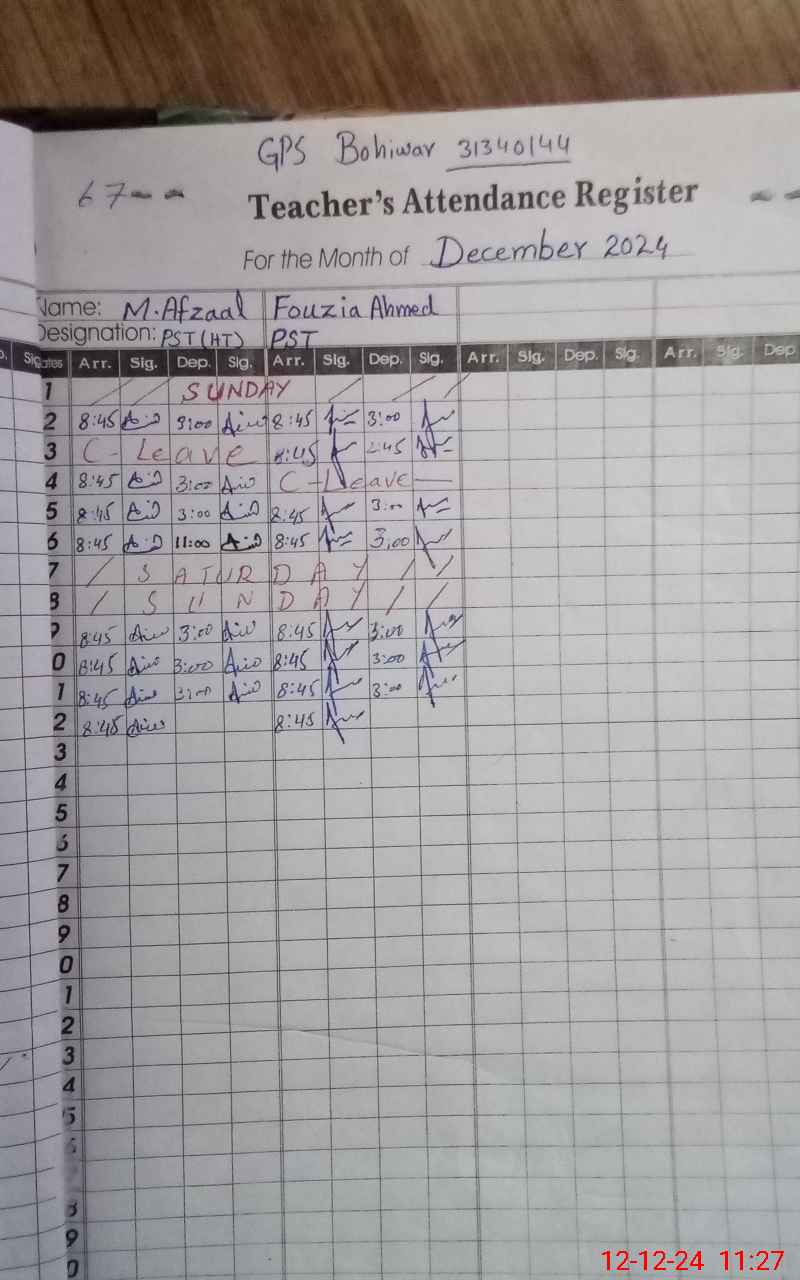 GPS Bohiwar 31340144
67--
Teacher's Attendance Register
For the Month of December 2024
Name: M.Afzaal Fouzia Ahmed
Designation: PST(HT) PST
Sig ates Arr. Sig. Dep. Sig. Arr. Sig. Dep. Sig. Arr. Sig. Dep. Sig. Arr. Sig. Dep
1 SUNDAY
2 8:45 3:00 8:45 3:00
3 C-Leave 8:45 2:45
4 8:45 3:00 C-Leave
5 8:45 3:00 8:45 3:00
6 8:45 11:00 8:45 3:00
7 SATURDAY
8 SUNDAY
9 8:45 3:00 8:45 3:00
0 8:45 3:00 8:45 3:00
1 8:45 3:00 8:45 3:00
2 8:45 8:45
3
4
5
6
7
8
9
0
1
2
3
4
5
6
8
9
0
12-12-24 11:27